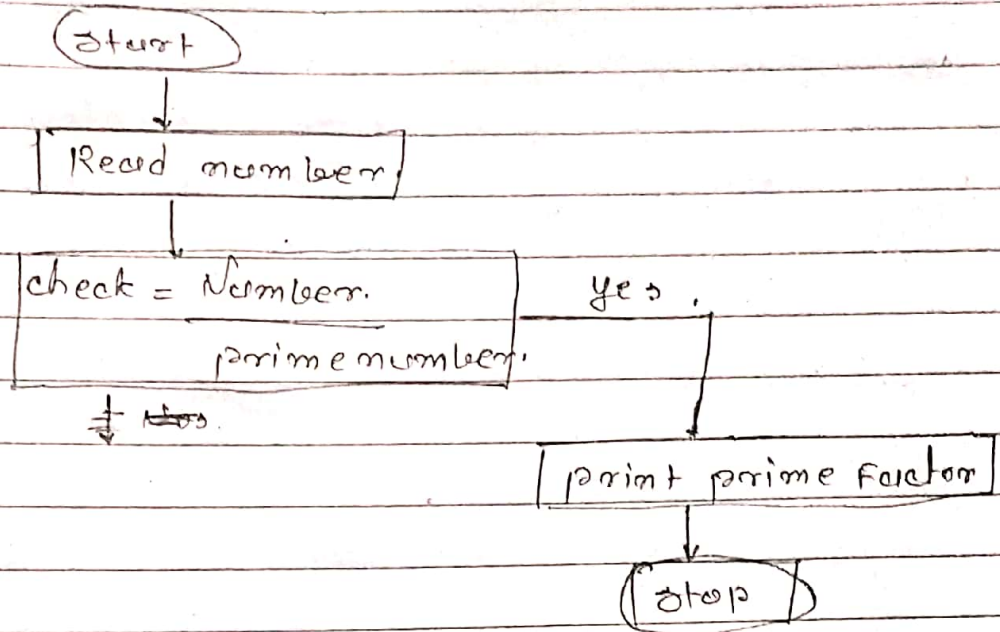 Start
Read number
check = Number.
yes.
prime number.
print prime Factor
Stop